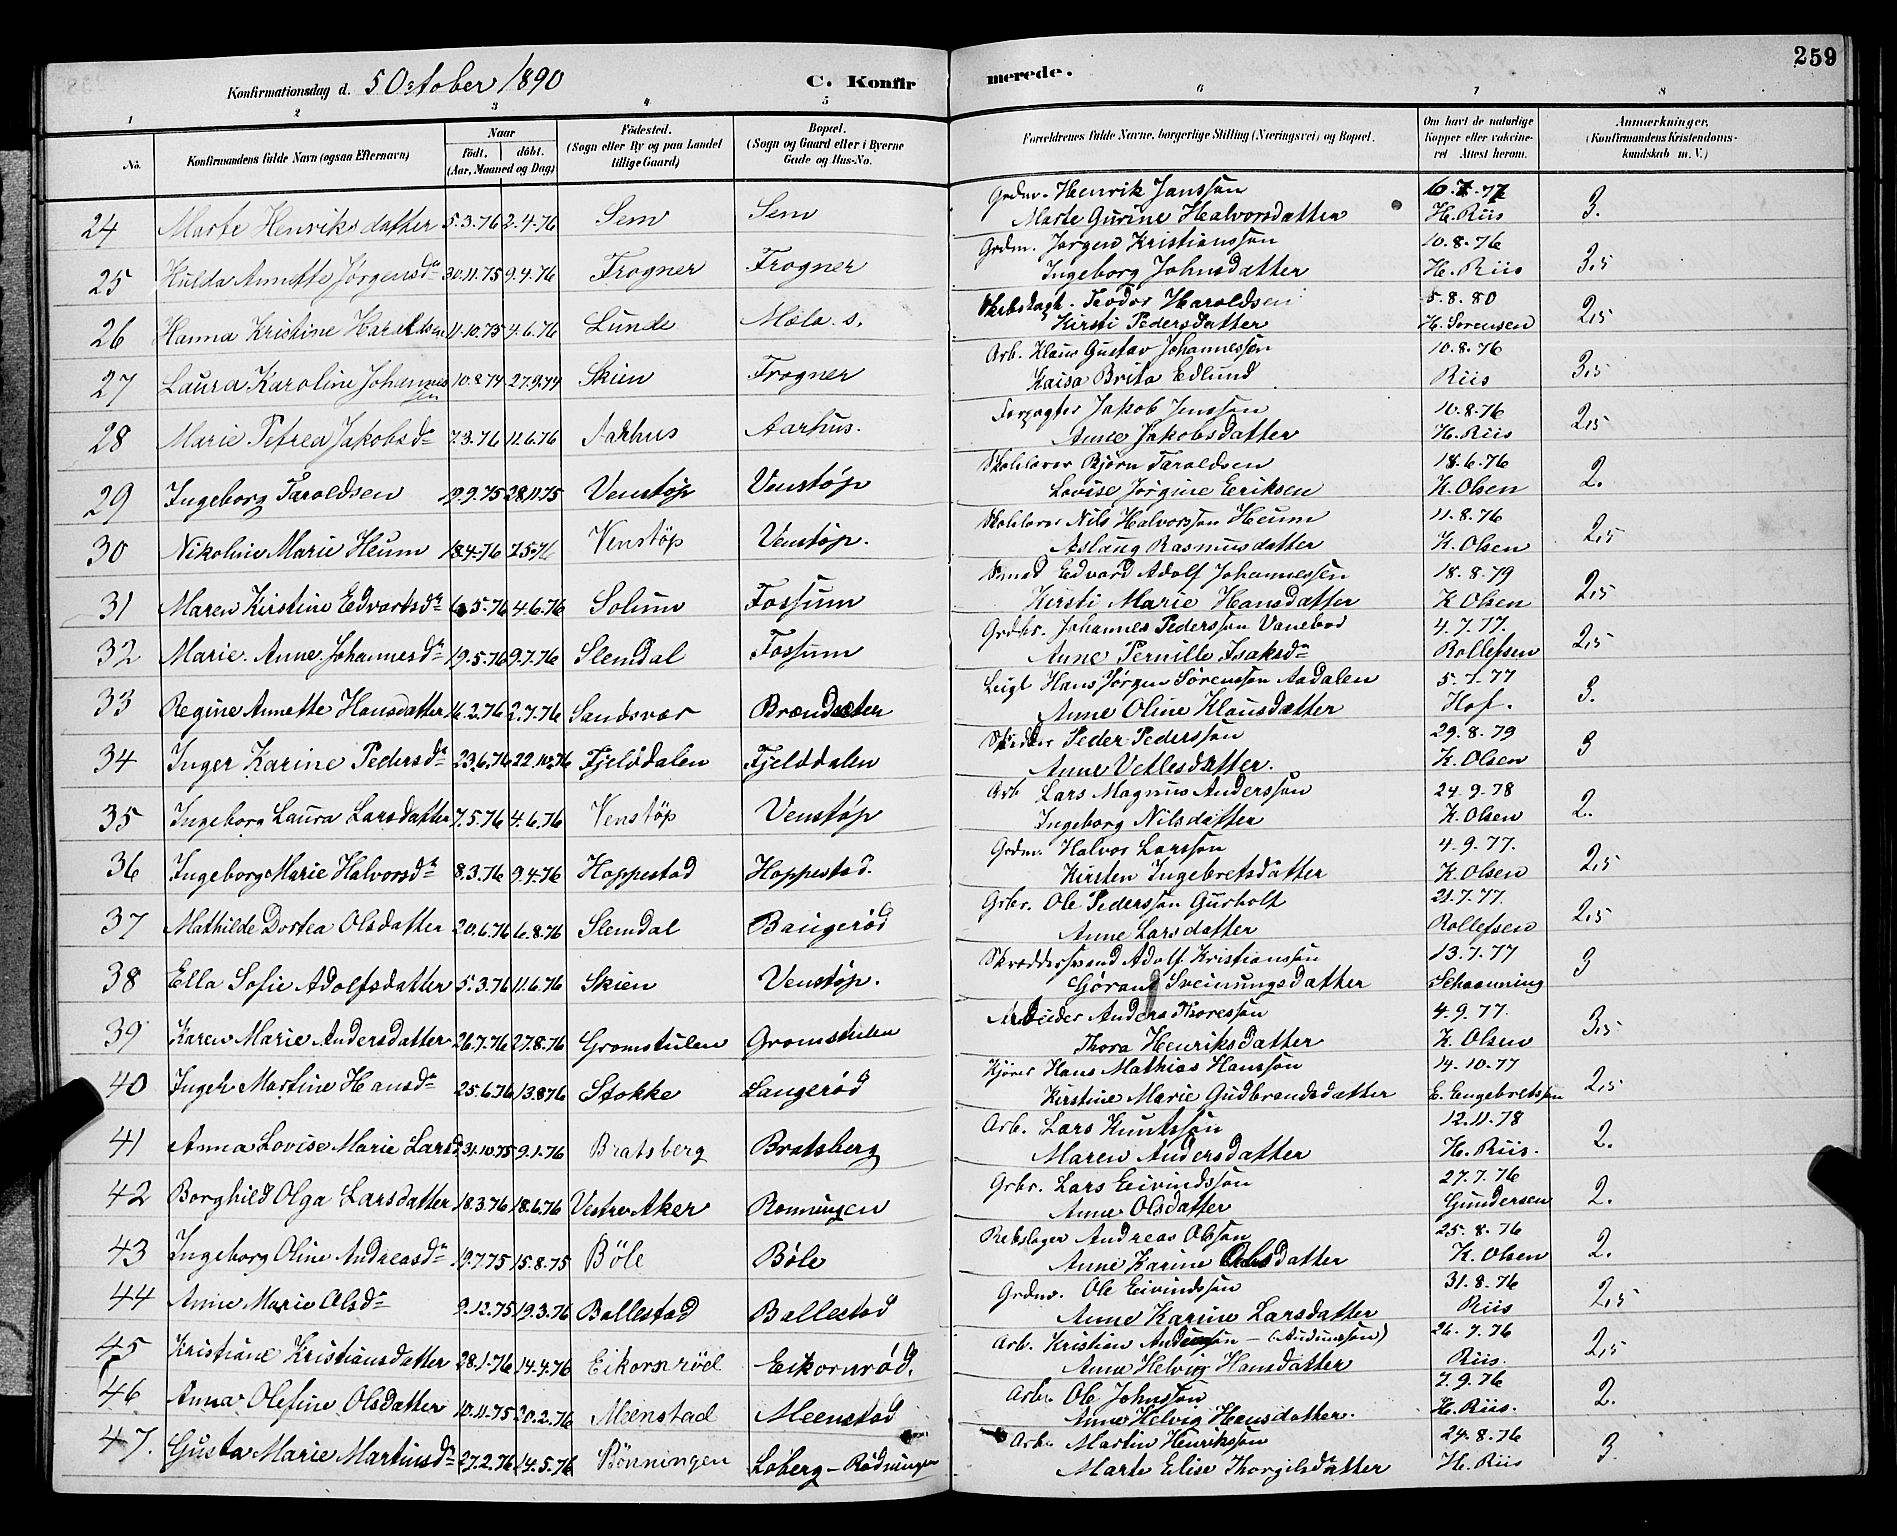 259
Konfirmationsdag d. 5 October 1890 C. Konfir merede.
1 2 3 4 5 6 7 8
No. Konfirmandens fulde Navn (ogsaa Efternavn) Naar födt. döbt. (Aar, Maaned og Dag) Födested. (Sogn eller By og paa Landet tillige Gaard) Bopæl. (Sogn og Gaard eller i Byerne Gade og Hus-No. Forældrenes fulde Navne, borgerlige Stilling (Næringsvei) og Bopæl. Om havt de naturlige Kopper eller vakcineret Attest herom. Anmærkninger, (Konfirmandens Kristendomskundskab m. V.)
24 Marte Henriksdatter 5.3.76 2.4.76 Sem Sem Grdm. Henrik Janssøn 6.7.77
Marte Gurine Halvorsdatter H. Riis 3.
25 Hulda Annette Jørgensdr 30.11.75 9.4.76 Frogner Frogner Grdm. Jørgen Kristianssøn 10.8.76
Ingeborg Johnsdatter H. Riis 3,5
26 Hanna Kristine Haraldsen 11.10.75 4.6.76 Lunde Mæla. s. Teodor Haroldsen 5.8.80
Kirsti Pedersdatter H. Sørensen 2,5
27 Laura Karoline Johannessen 10.8.74 27.9.74 Skien Frogner Arb. Klaus Gustav Johannessøn 10.8.76
Kaisa Brita Edlund Riis 3,5
28 Marie Petrea Jakobsdr 7.3.76 11.6.76 Aarhus Aarhus. Forpagter Jakob Jenssøn 10.8.76
Anne Jakobsdatter H. Riis 2,5
29 Ingeborg Taraldsen 19.9.75 28.11.75 Venstøp Venstøp Skolelærer Bjørn Taraldsen 18.6.76
Lovise Jørgine Eeriksen K. Olsen 2.
30 Nikoline Marie Heum 18.4.76 7.5.76 Venstøp Venstøp. Skolelærer Nils Halvorssøn Heum 11.8.76
Aslaug Rasmusdatter K. Olsen 2,5
31 Maren Kirstine Edvartsdr 6.5.76 4.6.76 Solum Fossum Smed Edvard Adolf Johannessen 18.8.79
Kirsti Marie Hansdatter K Olsen 2,5
32 Marie. Anne. Johannesdr 19.5.76 9.7.76 Slemdal Fossum Grdbr. Johannes Pederssøn Vanebod 4.7.77.
Anne Pernille Isaksdr Rollefsen 2,5
33 Regine Annette Hansdatter 16.2.76 2.7.76 Sandsvær Brændsæter Leigl Hans Jørgen Sørenssøn Aadalen 5.7.77
Anne Oline Klausdatter Hof. 3.
34 Inger Karine Pedersdr 23.6.76 22.10.76 Fjelddalen Fjelddalen Peder Pederssøn 29.8.79
Anne Vetlesdatter. K. Olsen 3
35 Ingeborg Laura Larsdatter 7.5.76 4.6.76 Venstøp Venstøp Arb Lars Magnus Anderssøn 24.9.78
Ingeborg Nilsdatter K. Olsen 2.
36 Ingeborg Marie Halvorsdr 8.3.76 9.4.76 Hoppestad Hoppestad. Grdm. Halvor Larssøn 4.9.77.
Kirsten Ingebretsdatter K. Olsen 2,5
37 Mathilde Dortea Olsdatter 20.6.76 6.8.76 Slemdal Baugerød Grbr. Ole Pederssøn Gurholt 21.7.77.
Anne Larsdatter Rollefsen 2,5
38 Ella Sofie Adolfsdatter 5.3.76 11.6.76 Skien Venstøp. Skræddersvend Adolf Kristianssøn 13.7.77
Gøran Sveinungsdatter Schaanning 3
39 Karen Marie Andersdatter 26.7.76 27.8.76 Gromstulen Gromstulen Arbeider Anders Thoressøn 4.9.77.
Thora Henriksdatter K. Olsen 3,5
40 Martine Hansdr 25.6.76 13.8.76 Stokke Langerød Kjører Hans Mathias Hanssøn 14.10.77
Kirstine Marie Gudbrandsdatter E. Engebretssen 2,5
41 Anna Lovise Marie Larsd 31.10.75 9.1.76 Bratsberg Bratsberg Arb. Lars Knutssøn 12.11.78
Maren Andersdatter H. Riis. 2.
42 Borghild Olga Larsdatter 18.3.76 18.6.76 Vestre Aker Rønningen Grbr. Lars Eivindssøn 27.7.76
Anne Olsdatter Gundersen 2.
43 Ingeborg Oline Andreasdr 19.7.75 15.8.75 Bøle Bøle Rebslager Andreas Olssøn 25.8.76
Anne Karine Olsdatter K. Olsen 2.
44 Anne Marie Olsdr 9.12.75 19.3.76 Ballestad Ballestad Grdm. Ole Eivindssøn 31.8.76
Anne Karine Larsdatter Riis 2,5
45 Kristiane Kristiansdatter 28.1.76 14.4.76 Eikornrød Eikornrød. Arb. Kristian Anderssøn - (Audunssøn) 26.7.76
Anne Helvig Hansdatter Riis. 2,5
46 Anna Olefine Olsdatter 10.11.75 20.2.76 Meenstad Meenstad Arb. Ole Johnssøn 7.9.76
Anne Helvig Hansdatter. H. Riis. 2.
47. Gusta Marie Martinsdr 27.2.76 14.5.76 Rønningen Løberg - Rødningen Arb. Martin Henrikssøn 24.8.76
Marte Elise Thorgilsdatter H. Riis 3.